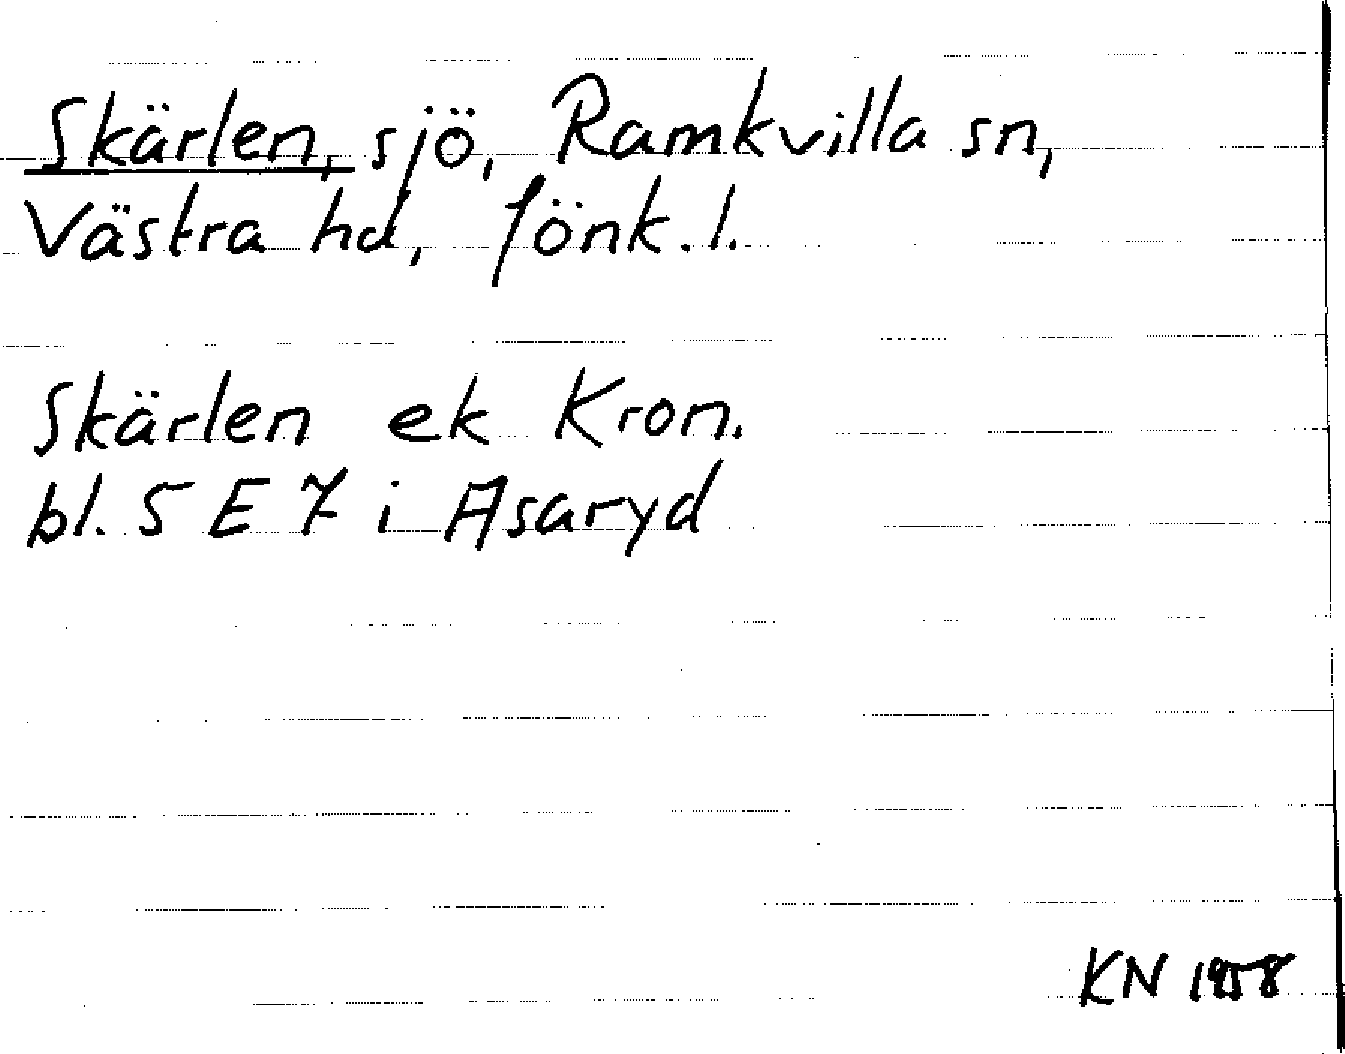 Skärlen, sjö, Ramkvilla sn,
Västra hd, Jönk. l.
Skärlen ek Kron.
bl. 5 E 7 i Asaryd
KN 1958